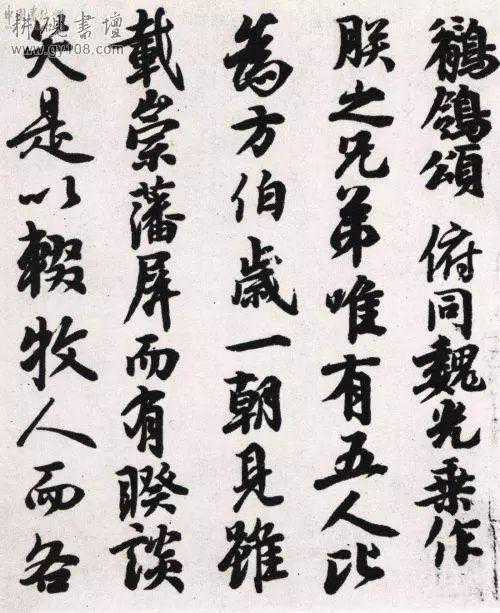 鶺鴒頌 俯同魏光乗作
朕之兄弟唯有五人比
為方伯歳一朝見雖
載崇藩屏而有暌談
笑是以輟牧人而各
耕砚書壇
www.gy108.com